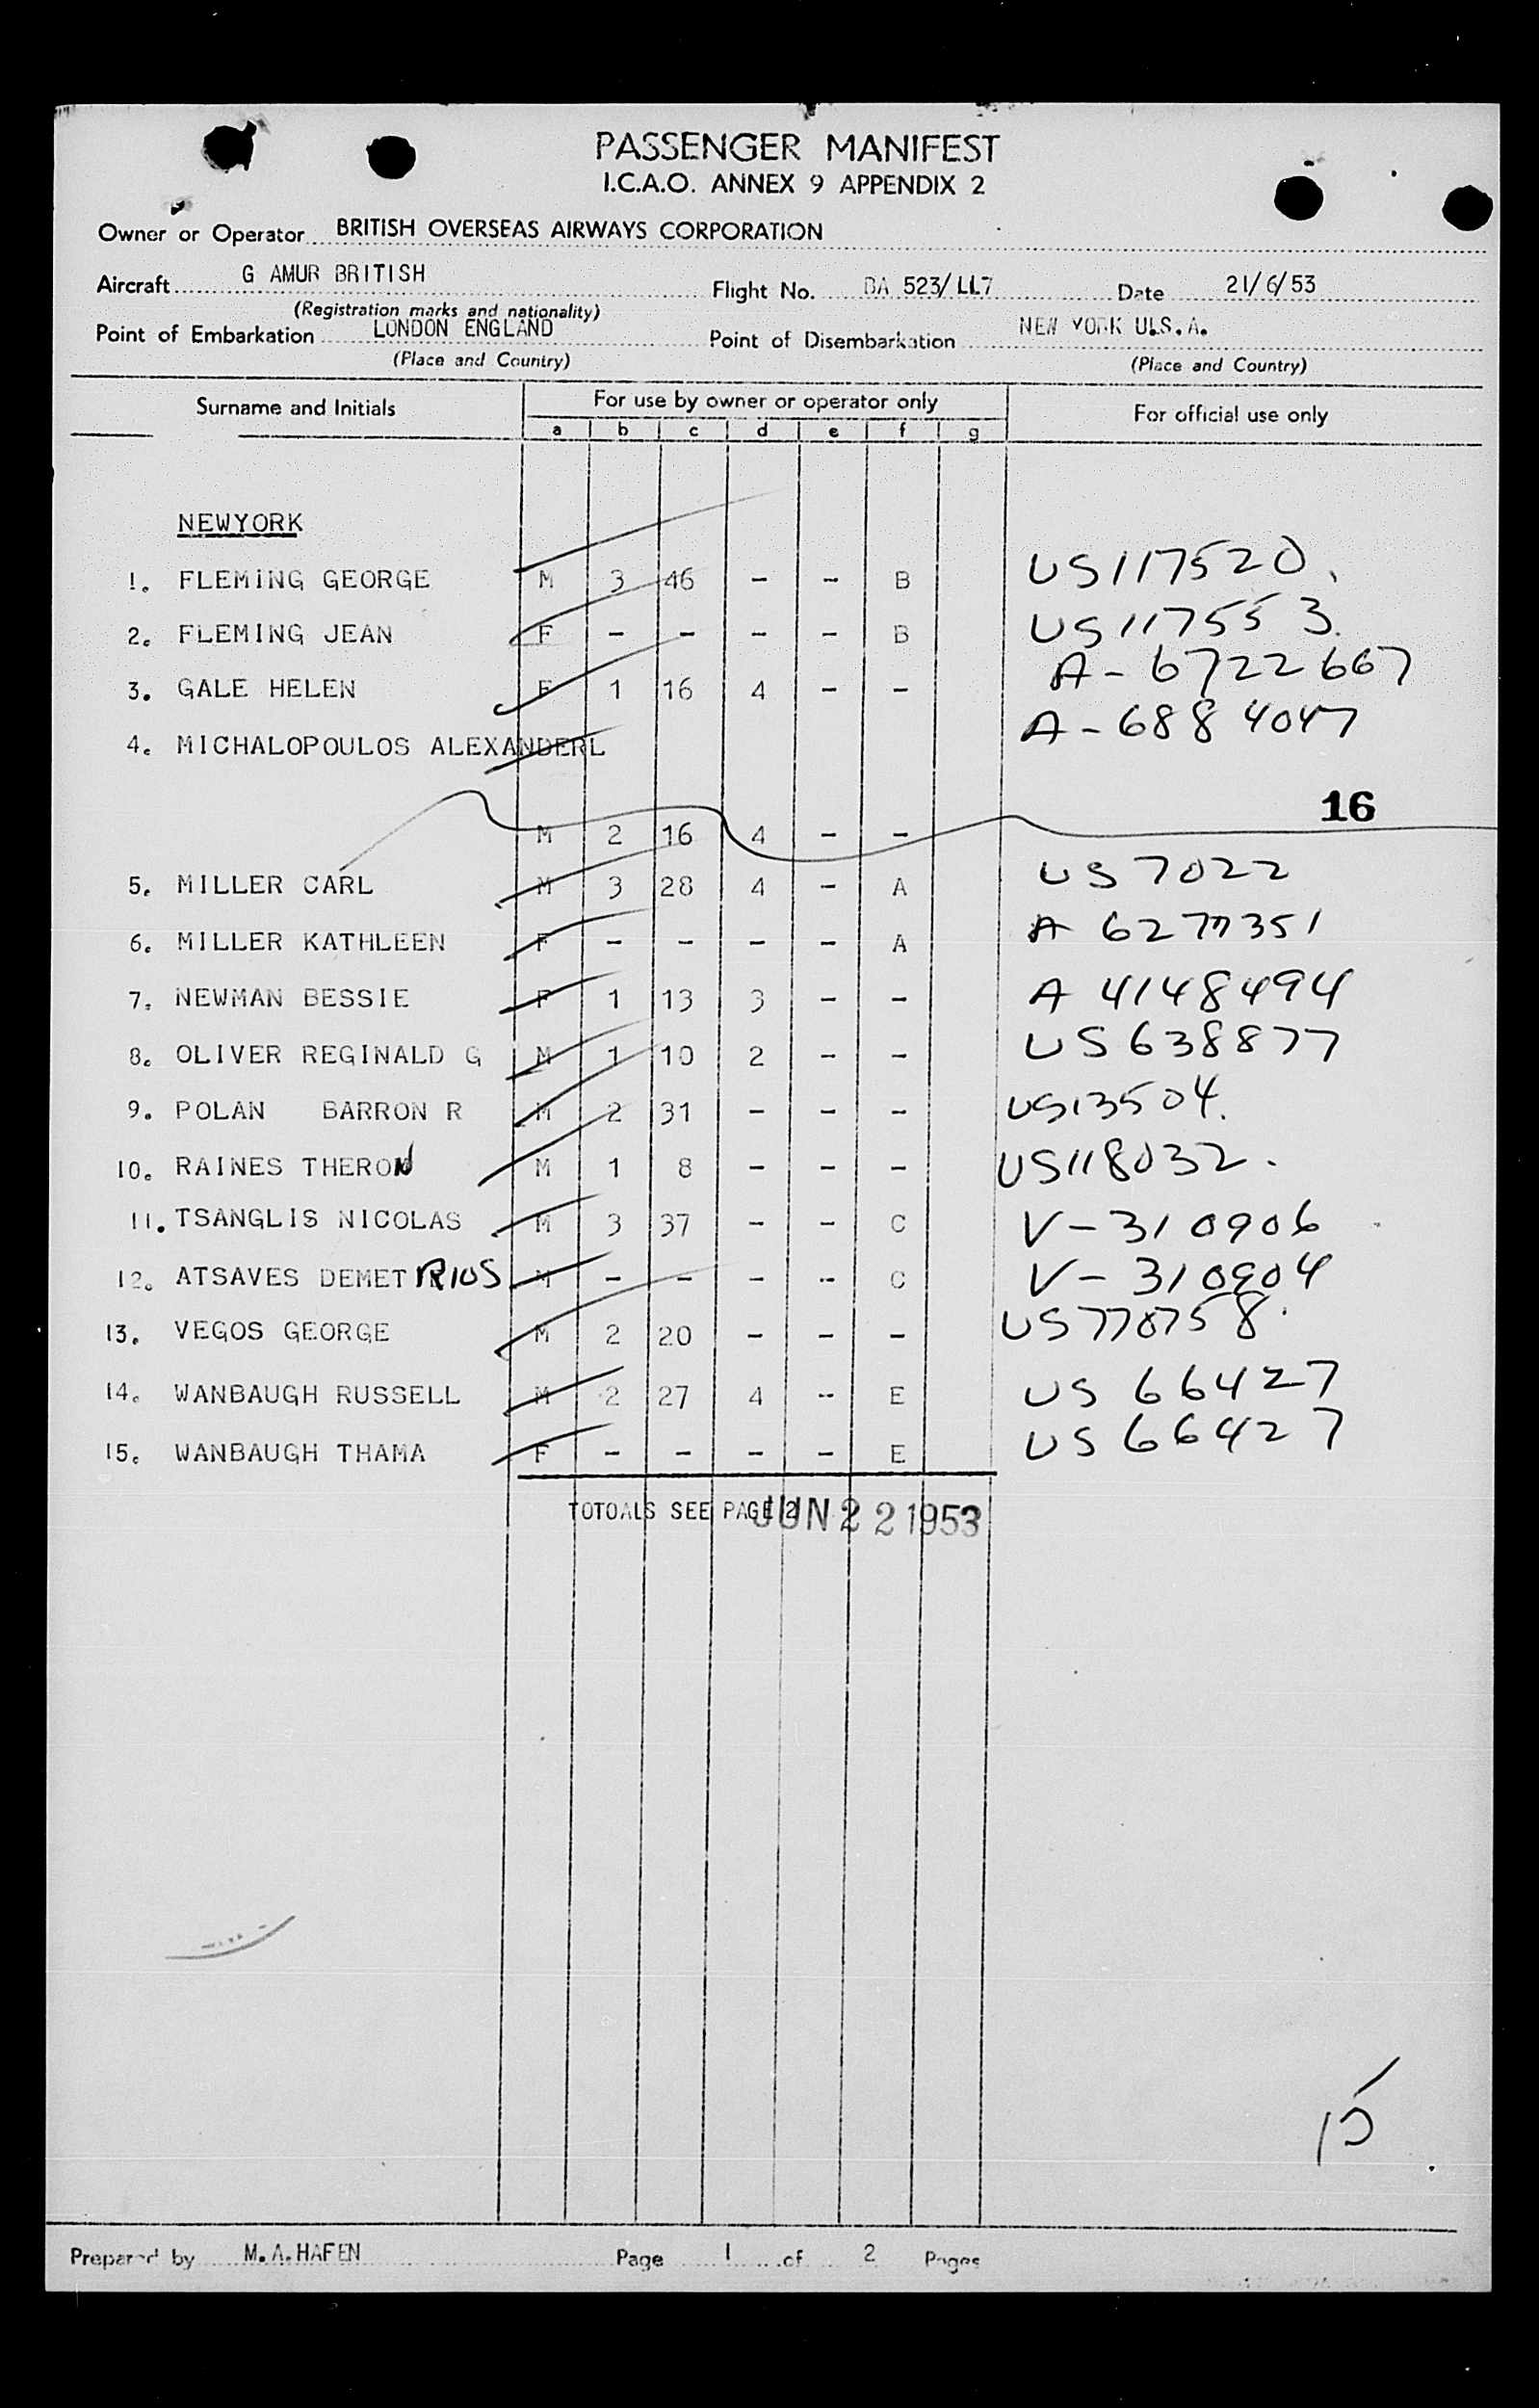 PASSENGER MANIFEST
I.C.A.O. ANNEX 9 APPENDIX 2
Owner or Operator BRITISH OVERSEAS AIRWAYS CORPORATION
Aircraft G AMUR BRITISH Flight No. BA 523/LL7 Date 21/6/53
(Registration marks and nationality)
Point of Embarkation LONDON ENGLAND Point of Disembarkation NEW YORK U.S.A.
(Place and Country) (Place and Country)
Surname and Initials For use by owner or operator only For official use only
a b c d e f g
NEWYORK
1. FLEMING GEORGE M 3 46 - - B US117520.
2. FLEMING JEAN F - - - - B US117553.
3. GALE HELEN F 1 16 4 - - A-6722667
4. MICHALOPOULOS ALEXANDERL A-6884047
16
M 2 16 4 - -
5. MILLER CARL M 3 28 4 - A US 7022
6. MILLER KATHLEEN F - - - - A A 6277351
7. NEWMAN BESSIE F 1 13 3 - - A 4148494
8. OLIVER REGINALD G M 1 10 2 - - US 638877
9. POLAN BARRON R M 2 31 - - - US13504.
10. RAINES THERON M 1 8 - - - US118032.
11. TSANGLIS NICOLAS M 3 37 - - C V-310906
12. ATSAVES DEMETRIOS M - - - - C V-310904
13. VEGOS GEORGE M 2 20 - - - US770758.
14. WANBAUGH RUSSELL M 2 27 4 - E US 66427
15. WANBAUGH THAMA F - - - - E US 66427
TOTOALS SEE PAGE 2 JUN 22 1953
15
Prepared by M.A.HAFEN Page 1 of 2 Pages